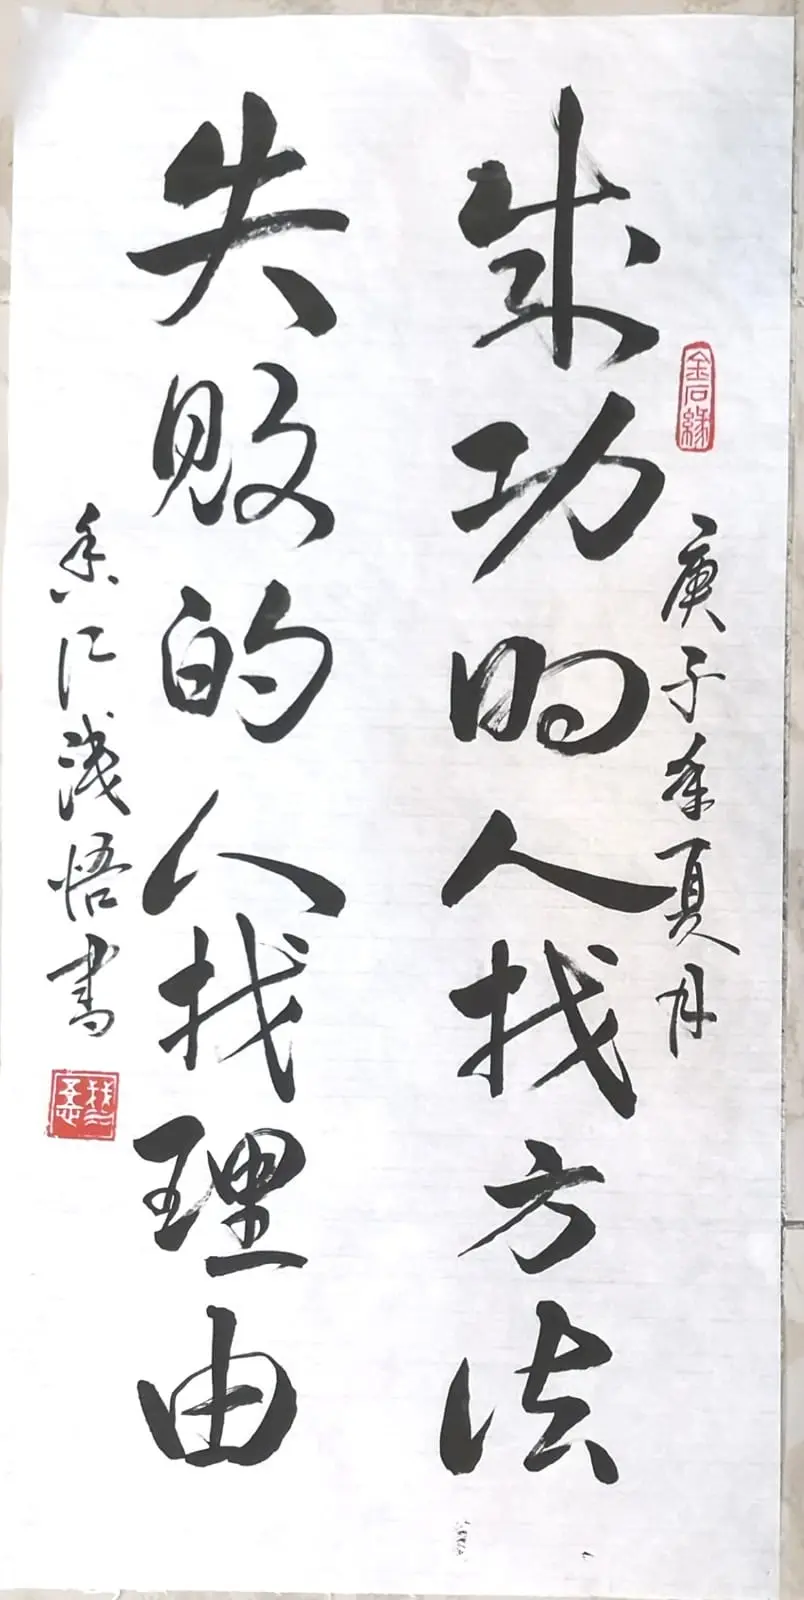 成功的人找方法
庚子年夏月
失败的人找理由
香江浅悟书
金石缘